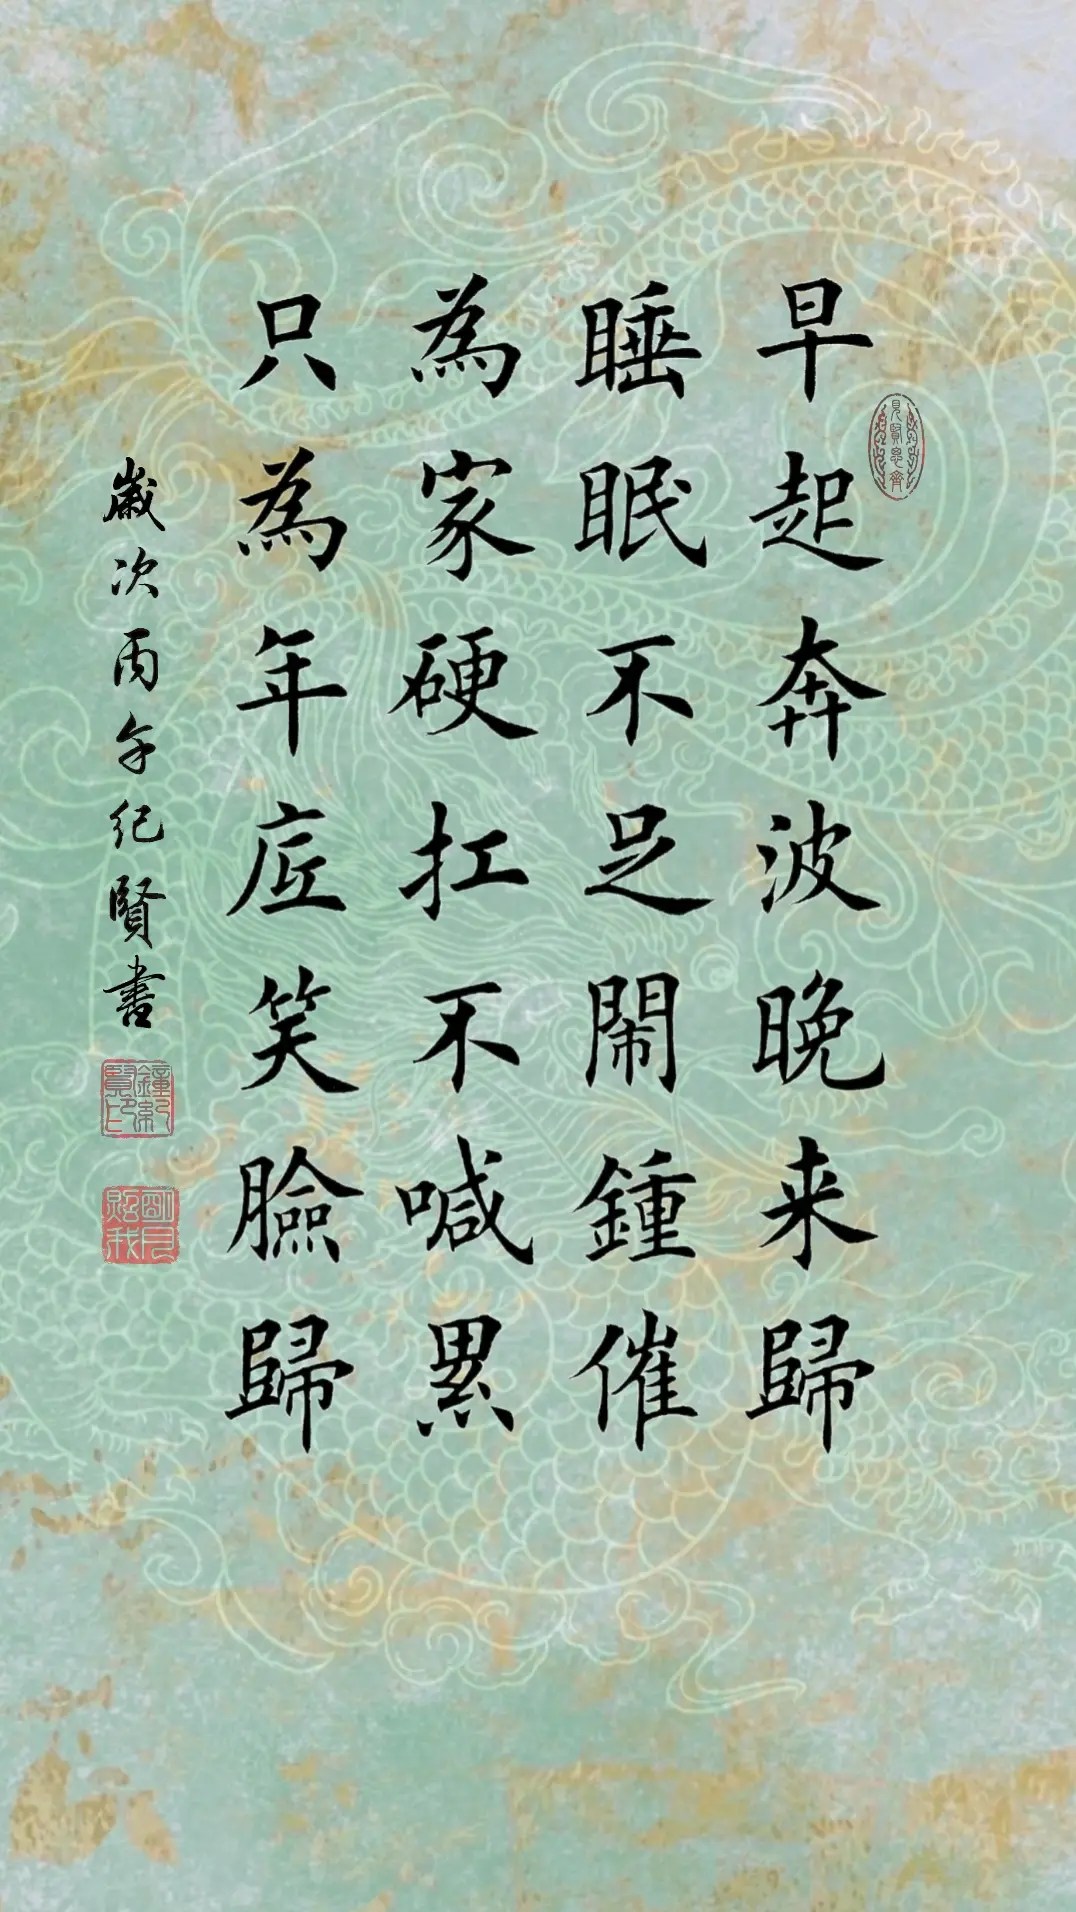 早起奔波晚来歸
睡眠不足鬧鍾催
為家硬扛不喊累
只為年底笑臉歸
歲次丙午纪賢書
見賢思齊
鐘紀賢印